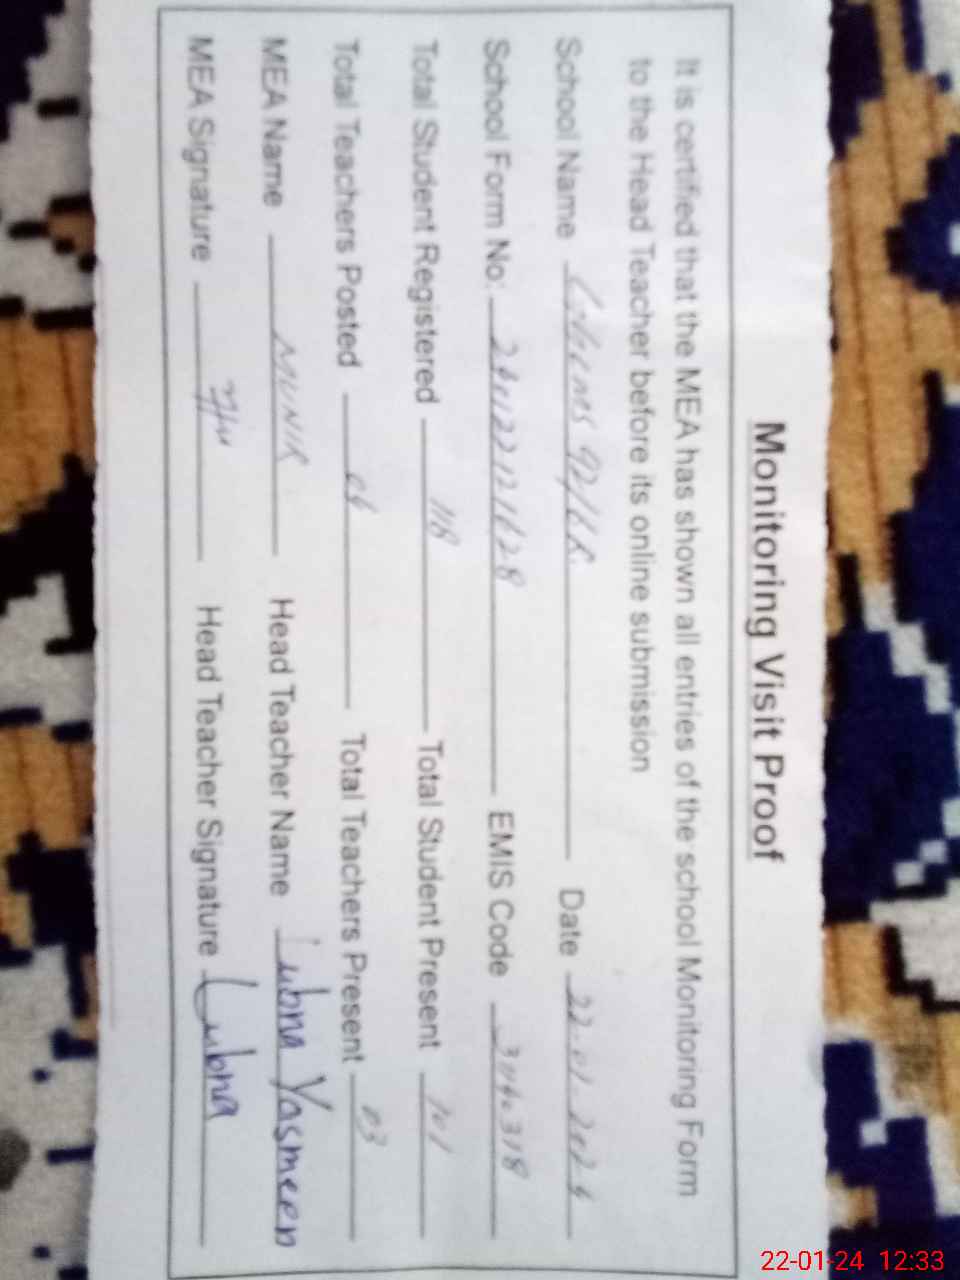 Monitoring Visit Proof
It is certified that the MEA has shown all entries of the school Monitoring Form
to the Head Teacher before its online submission
School Name 92/ Date 22-01-2024
School Form No. EMIS Code
Total Student Registered 118 Total Student Present 101
Total Teachers Posted Total Teachers Present 03
MEA Name MUNIR Head Teacher Name Lubna Yasmeen
MEA Signature Head Teacher Signature Lubna
22-01-24 12:33